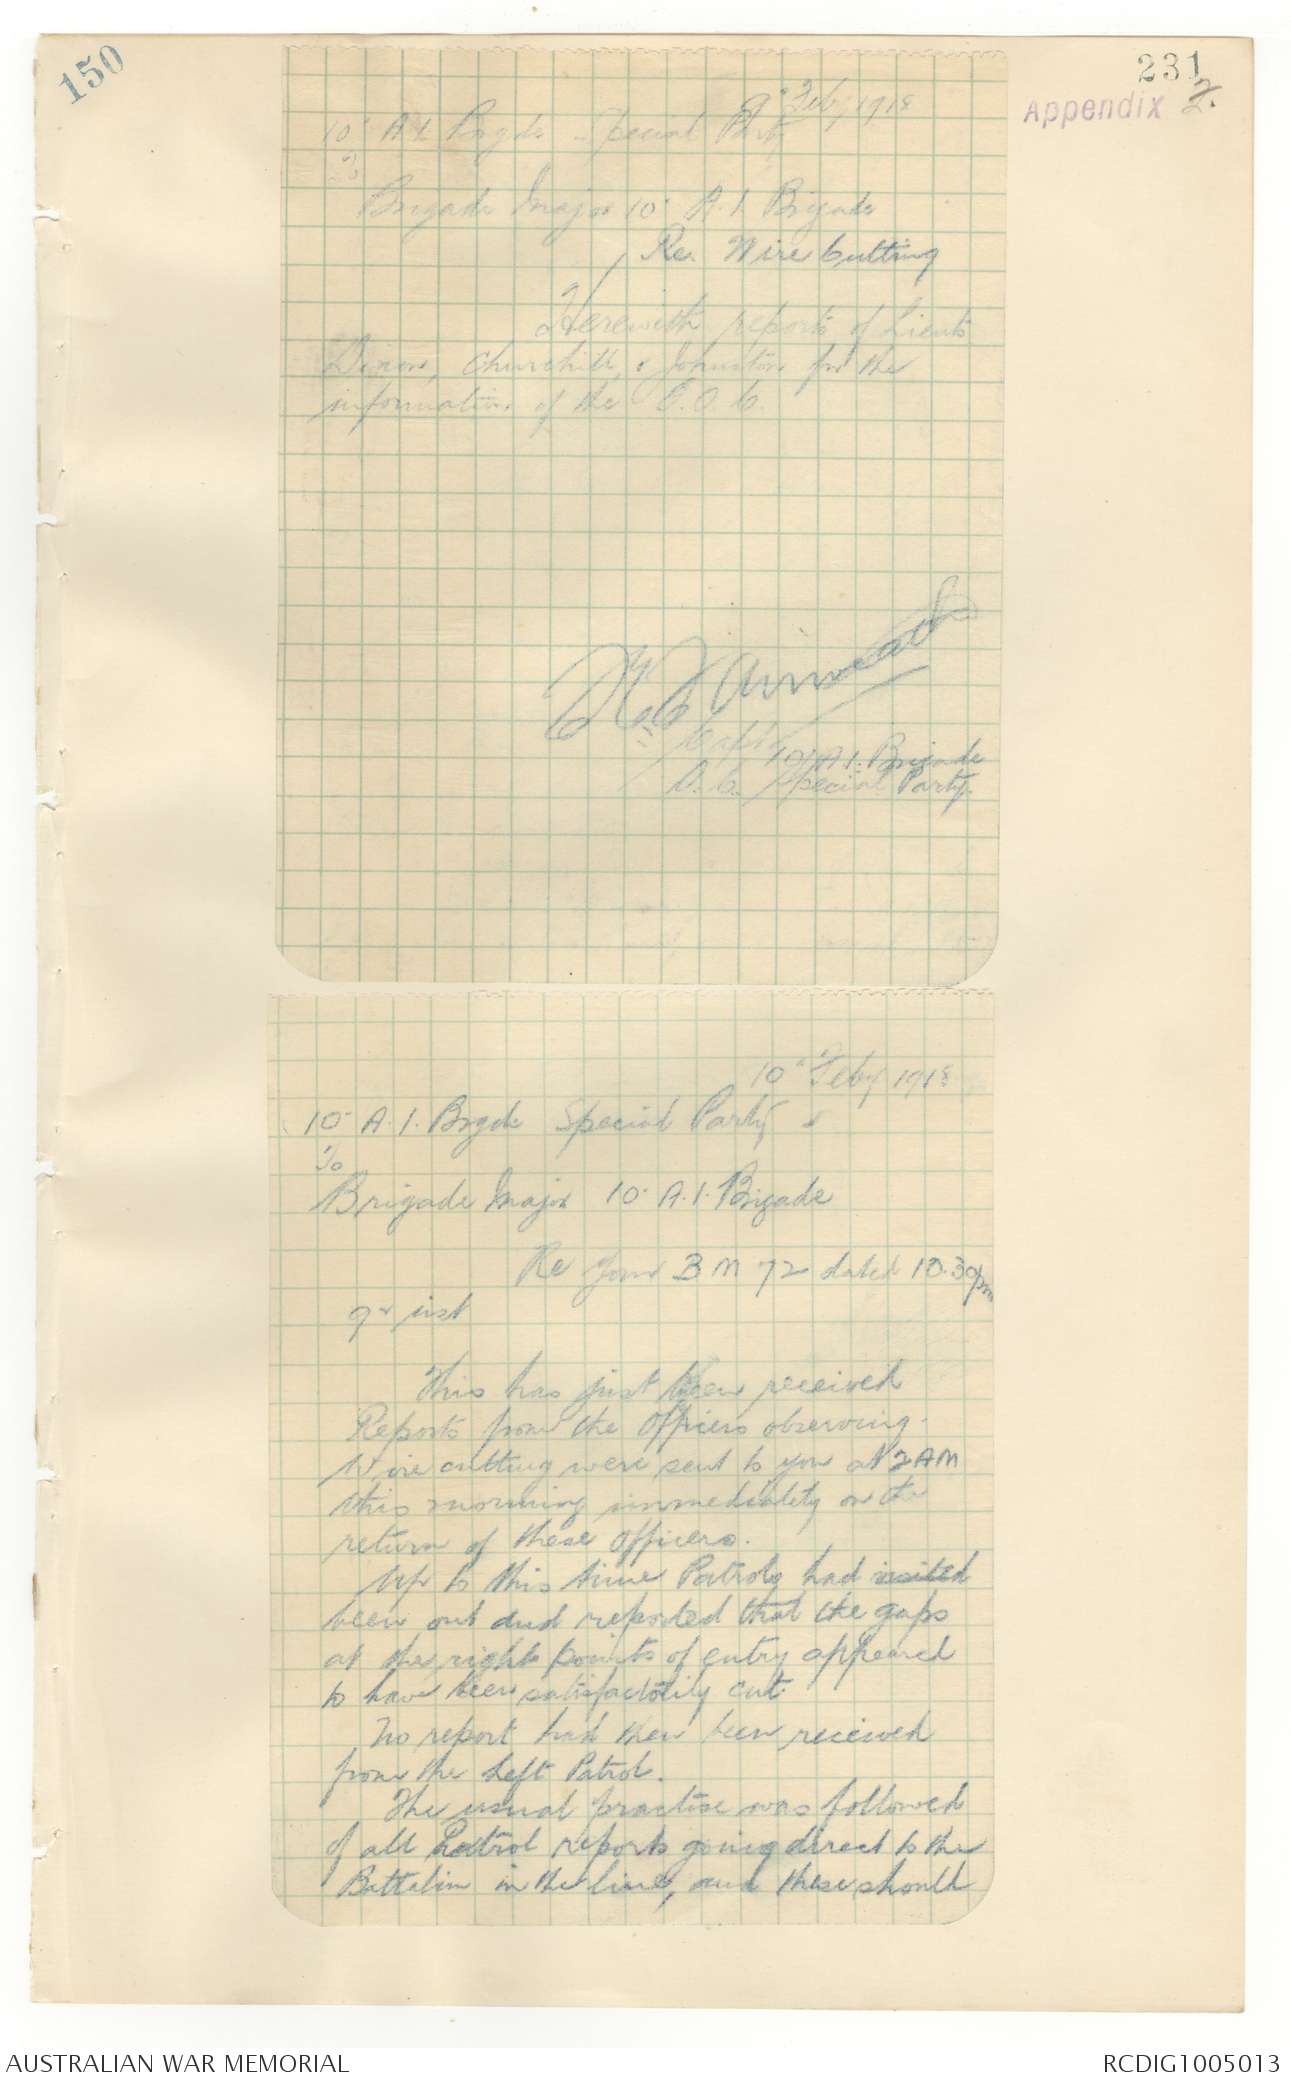 150
231
Appendix 2.
9" Feby 1918
10" A I. Brgde Special Party
To
Brigade Major 10" A. I. Brigade
Re. Wire Cutting
Herewith reports of Lieuts
Dixon, Churchill, & Johnston for the
information of the G.O.C.
Capt
10/A I. Brigade
O.C. Special Party.
10" Feby 1918
10" A. I. Brgde Special Party
To
Brigade Major 10" A. I. Brigade
Re your BM 72 dated 10.30pm
9" inst
This has just been received
Reports from the Officers observing
Wire cutting were sent to you at 2AM
this morning immediately on the
return of these officers.
Up to this time Patrols had visited
been out and reported that the gaps
at the right points of entry appeared
to have been satisfactorily cut.
No report had then been received
from the Left Patrol.
The usual practise was followed
of all Patrol reports going direct to the
Battalion in the line, and these should
AUSTRALIAN WAR MEMORIAL
RCDIG1005013